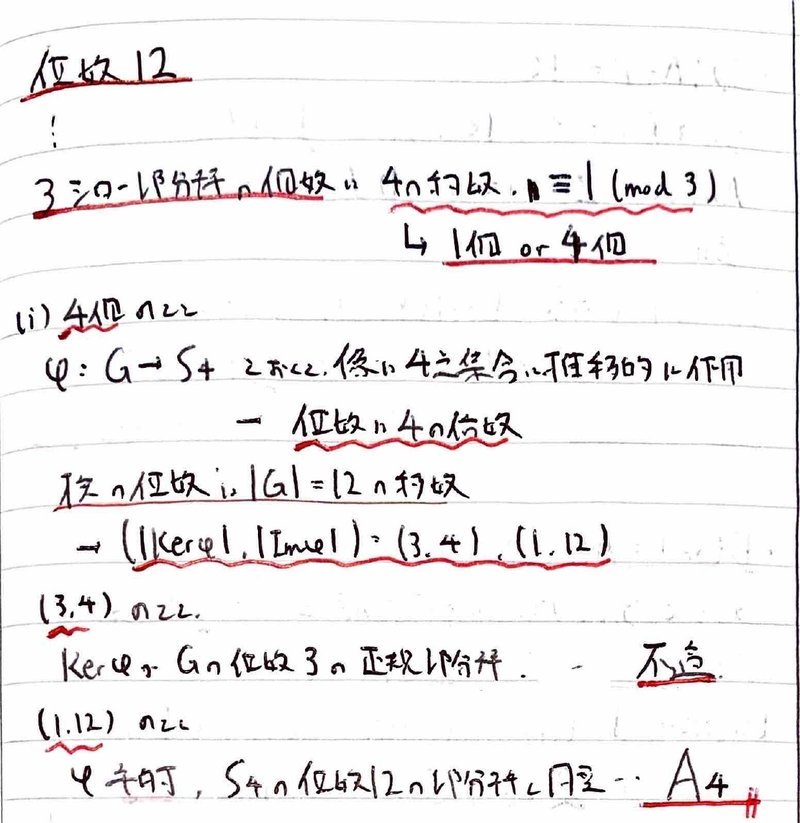 位数12
⋮
3シロー部分群の個数は 4の約数. n ≡ 1 (mod 3)
↳ 1個 or 4個
(i) 4個のとき
φ: G→S4 とおくと. 像は4点集合に推移的に作用
→ 位数は4の倍数
核の位数は |G|=12の約数
→ (|Kerφ|, |Imφ|) = (3.4), (1.12)
(3,4) のとき.
Kerφが Gの位数3の正規部分群. … 不適
(1.12) のとき
φ単射, S4の位数12の部分群と同型… A4